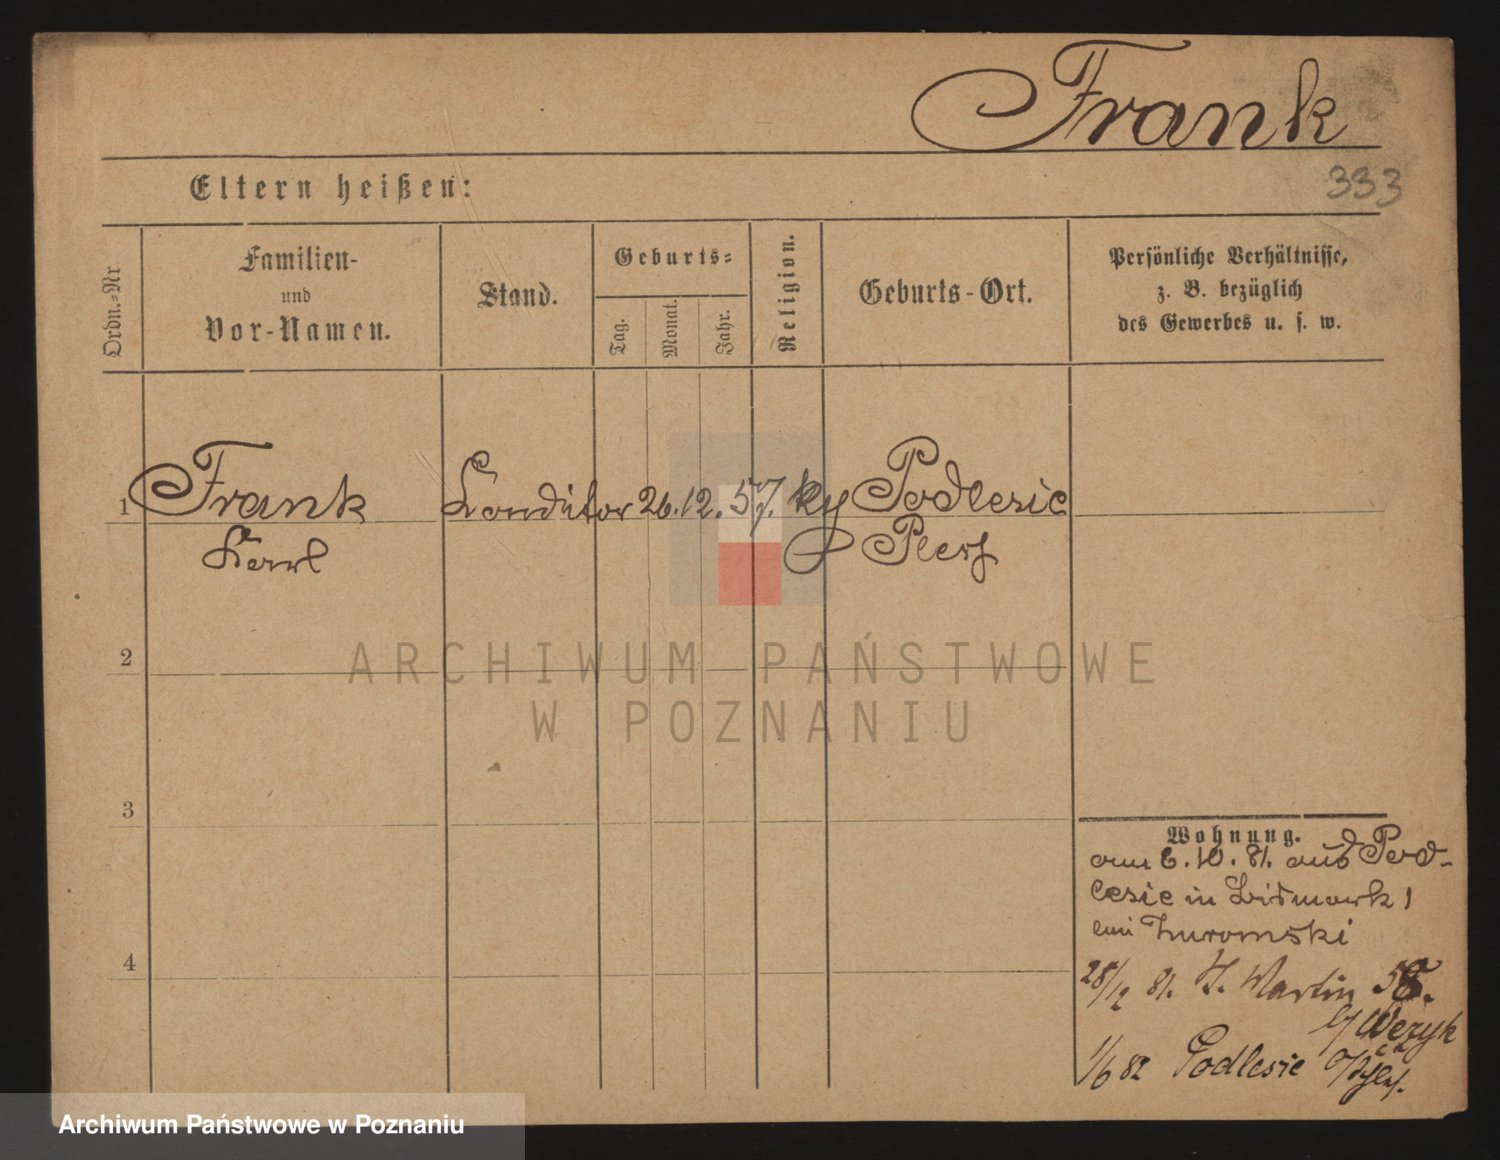 Frank
333
Eltern heißen:
Ordn.=Nr
Familien-
und
Vor-Namen.
Stand.
Geburts=
Tag.
Monat.
Jahr.
Religion.
Geburts-Ort.
Persönliche Verhältnisse,
z. B. bezüglich
des Gewerbes u. s. w.
1 Frank Conditor 26.12.57. Podlesie
Karl Pless
2
3
4
Wohnung.
am 6.10.81. aus Pod-
lesie in Bismark 1
Zuromski
28/12 81. St. Martin 58.
b/ Węzyk
1/6 82 Podlesie
ARCHIWUM PAŃSTWOWE
W POZNANIU
Archiwum Państwowe w Poznaniu